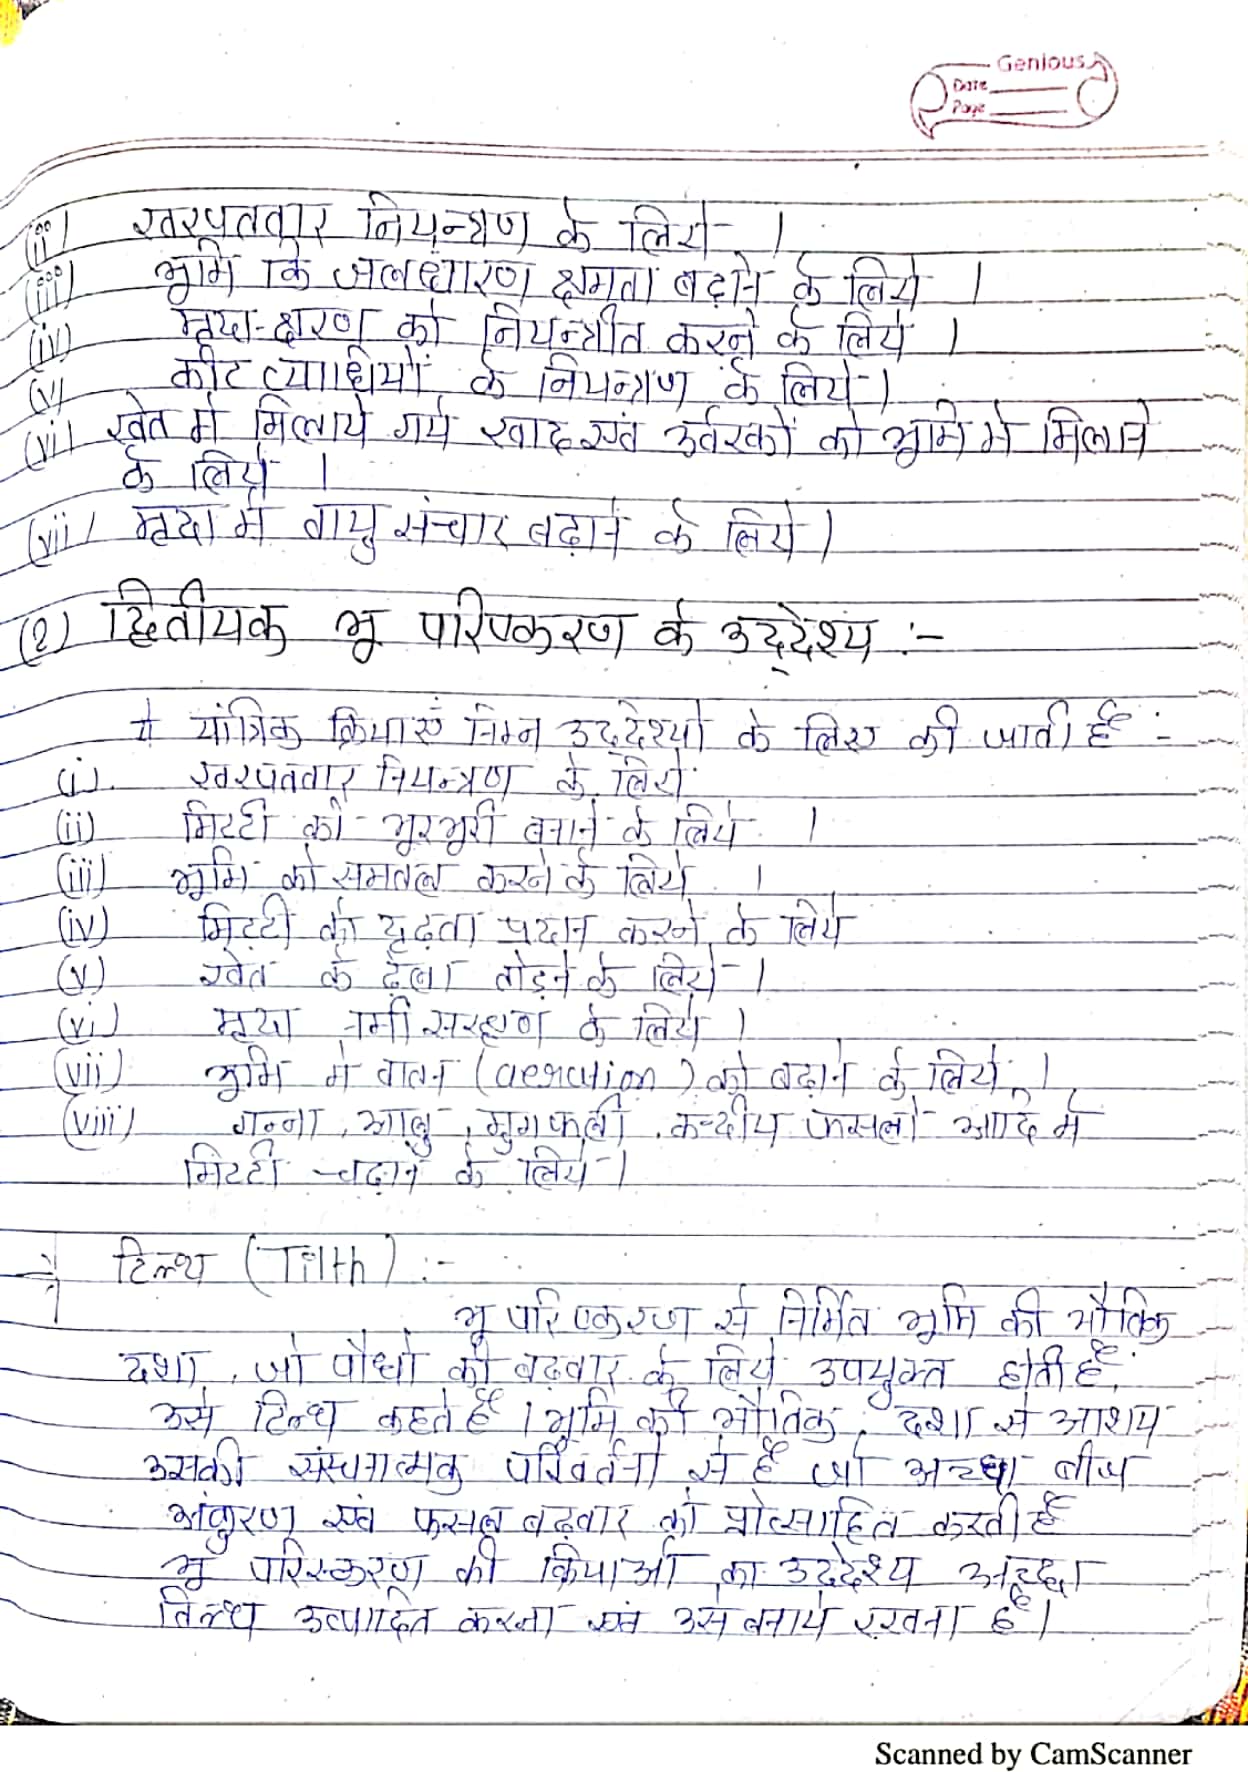 Genious
Date
Page
(ii) खरपतवार नियन्त्रण के लिये ।
(iii) भूमि कि जलधारण क्षमता बढ़ाने के लिये ।
(iv) मृदा-क्षरण को नियन्त्रीत करने के लिये ।
(v) कीट व्याधियों के नियन्त्रण के लिये ।
(vi) खेत मे मिलाये गये खाद एवं उर्वरकों को भूमि मे मिलाने
के लिये ।
(vii) मृदा मे वायु संचार बढ़ाने के लिये ।
(2) द्वितीयक भू परिष्करण के उद्देश्य :-
ये यांत्रिक क्रियाएं निम्न उद्देश्यो के लिए की जाती है :-
(i) खरपतवार नियन्त्रण के लिये
(ii) मिटटी को भूरभूरी बनाने के लिये ।
(iii) भूमि को समतल करने के लिये ।
(iv) मिटटी को दृढ़ता प्रदान करने के लिये
(v) खेत के ढेला तोड़ने के लिये ।
(vi) मृदा नमी संरक्षण के लिये ।
(vii) भूमि मे वातन (aeration) को बढ़ाने के लिये ।
(viii) गन्ना, आलु, मुगफली, कन्दीय फसलो आदि मे
मिटटी चढ़ाने के लिये ।
→ टिल्थ (Tilth) :-
भू परिष्करण से निर्मित भूमि की भौतिक
दशा, जो पौधो की बढ़वार के लिये उपयुक्त होती है,
उसे टिल्थ कहते है । भूमि की भौतिक दशा से आशय
उसकी संरचनात्मक परिवर्तनो से है जो अच्छा बीज
अंकुरण एवं फसल बढ़वार को प्रोत्साहित करती है
भू परिस्करण की क्रियाओ का उददेश्य अच्छा
तिल्थ उत्पादित करना एवं उसे बनाये रखना है ।
Scanned by CamScanner